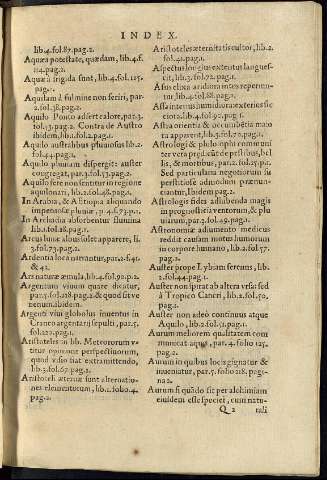 INDEX.
lib.4.fol.87.pag.2.
Aquæ potestate, quædam, lib.4.f.
114.pag.2.
Aqua à frigida sunt, lib.4.fol.125.
pag.1.
Aquilam à fulmine non feriri, par.
2.fol.38.pag.2.
Aquilo Ponto adfert calore, par.3.
fol.13.pag.2. Contra de Austro
ibidem, lib.fol.2.pag.1.
Aquilo australibus pluuiosus lib.2.
fol.44.pag.1.
Aquilo pluuiam dispergit: auster
congregat, par.3.fol.53.pag.2.
Aquilo fere non sentitur in regione
aquilonari, lib.2.fol.48.pag.1.
In Arabia, & Aetiopia aliquando
impensæ pluuiæ, p.4.f.73.p.1.
In Archadia absorbentur flumina
lib.2.fol.28.pag.1.
Arcus lunæ alous iolet apparere, li.
3.fol.73.pag.2.
Ardentia loca narrantur, par.2.f.41.
& 42.
Ars naturæ æmula, lib.4.fol.90.p.2.
Argentum viuum quare dicatur,
par.5.fol.218.pag.2.& quod sit ve
nenum ibidem.
Argenti viui globulus inuentus in
Craneo argentarij sepulti, par.5.
fol.220.pag.1.
Aristoteles in lib. Meteororum v-
titur opinione perspectiuorum,
quod visio fiat extramittendo,
lib.3.fol.67.pag.1.
Aristoteli æternæ sunt alternatio-
nes elementorum, lib.1.folio.4.
pag.2.
Aristoteles æternitatis cultor, lib.2.
fol.41.pag.1.
Aspectus longius extentus langues-
cit, lib.3.fol.72.pag.1.
Assa elixa aridiora intus reperiun-
tur, lib.4.fol.88.pag.1.
Assa intenus humidiora exterius sic
ciora.lib.4.fol.90.pag.1.
Astra orientia & occumbētia maio
ra apparent, lib.3.fol.70.pag.1.
Astrologi & philosophi communi
ter vera prædicūt de pestibus, bel
lis, & moribus, par.2.fol.57.pag.1.
Sed particularia negotiorum su
perstitiosè odmodum prænun-
ciantur, ibidem pag.2.
Astrologis fides adhibenda magis
in prognosticis ventorum, & plu
uiarum par.3.fol.49.pag.1.
Astronomiæ adiumento medicus
reddit causam motus humorum
in corpore humano, lib.2.fol.57.
pag.1.
Auster prope Lybiam serenus, lib.
2.fol.44.pag.1.
Auster non spirat ab altera vrsa: sed
à Tropico Cancri, lib.2.fol.50.
pag.1.
Auster non adeò continuus atque
Aquilo, lib.2.fol.51.pag.1.
Aurum meliorem qualitatem com
municat aquæ, par.4.folio 125.
pag.2.
Aurum in quibus locis gignatur &
inueniatur, par.5.folio 218.pagi-
na 2.
Aurum si quādo sit per alchimiam
eiusdem esse speciei, cum natu-
Q 2 rali